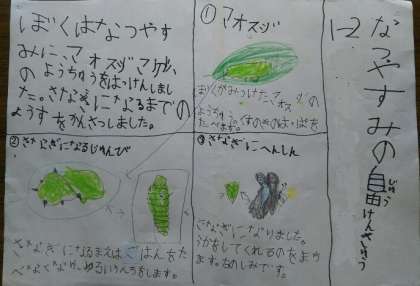 1-2
なつやすみの自由けんきゅう
じゆう
ぼくはなつやす
みに、アオスジアゲハ
のようちゅうをはっけんしまし
た。さなぎになるまでの
ようすをかんさつしました。
① アオスジ
ぼくがみつけたアオス
の
ようちゅう
くすのきのはっぱを
たべます。
② さなぎになるじゅんび
さなぎになるまえはごはんをた
べなくなり、ゆるいうんちをします。
③ さなぎにへんしん
さなぎになりました。
うかをしてくれるのをまち
ます。たのしみです。